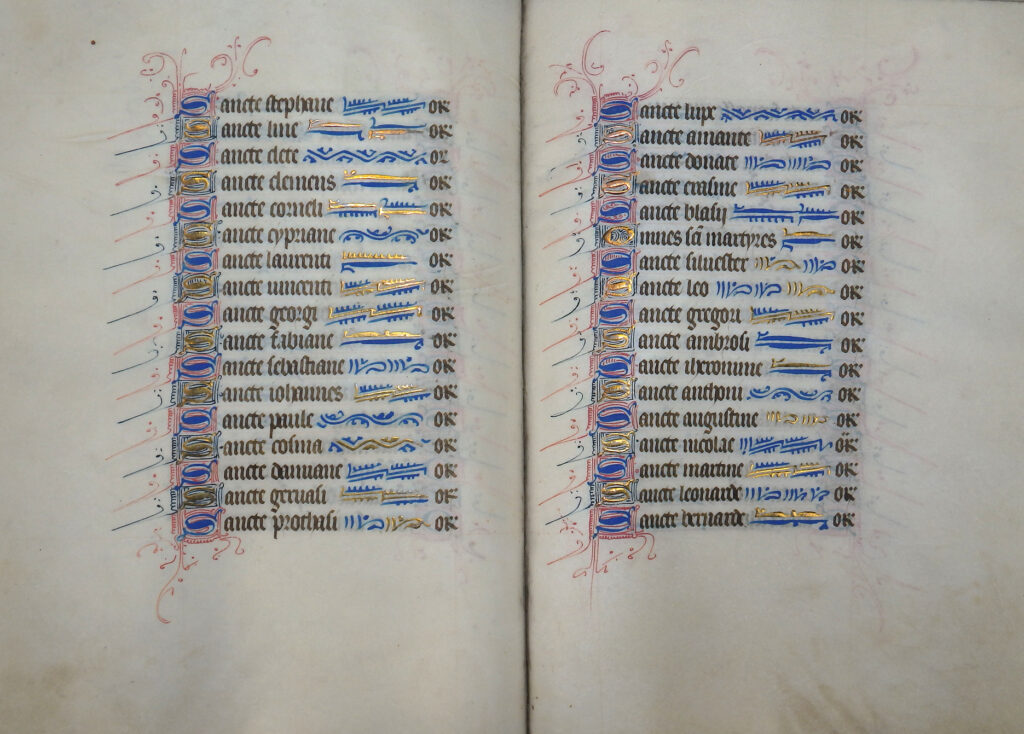 Sancte stephane or
Sancte line or
Sancte clete or
Sancte clemens or
Sancte corneli or
Sancte cypriane or
Sancte laurenti or
Sancte vincenti or
Sancte georgi or
Sancte fabiane or
Sancte sebastiane or
Sancte iohannes or
Sancte paule or
Sancte cosma or
Sancte damiane or
Sancte geruasi or
Sancte prothasi or
Sancte lupe or
Sancte amante or
Sancte donate or
Sancte erasme or
Sancte blasij or
Omnes sā martyres or
Sancte siluester or
Sancte leo or
Sancte gregori or
Sancte ambrosi or
Sancte iheronime or
Sancte anthoni or
Sancte augustine or
Sancte nicolae or
Sancte martine or
Sancte leonarde or
Sancte bernarde or